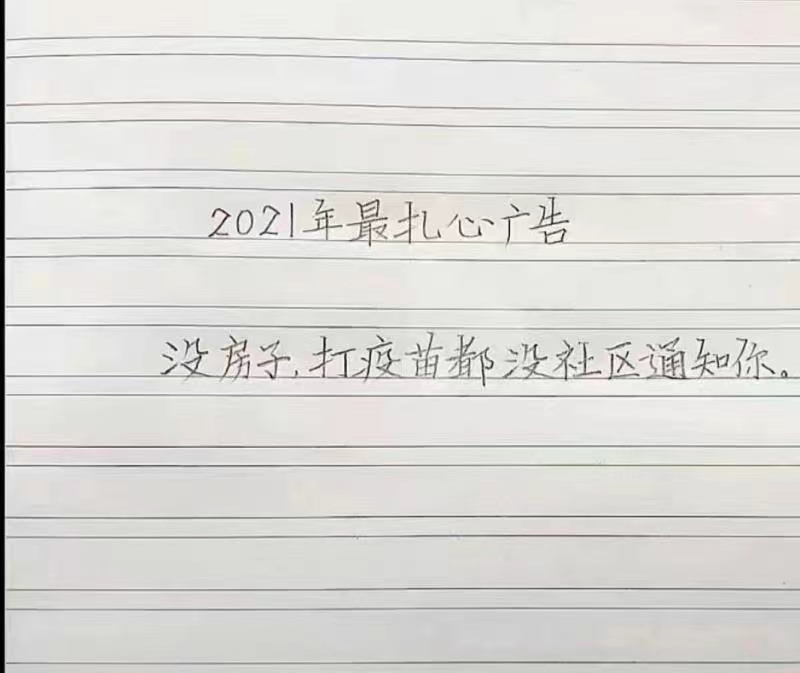 2021年最扎心广告
没房子,打疫苗都没社区通知你。